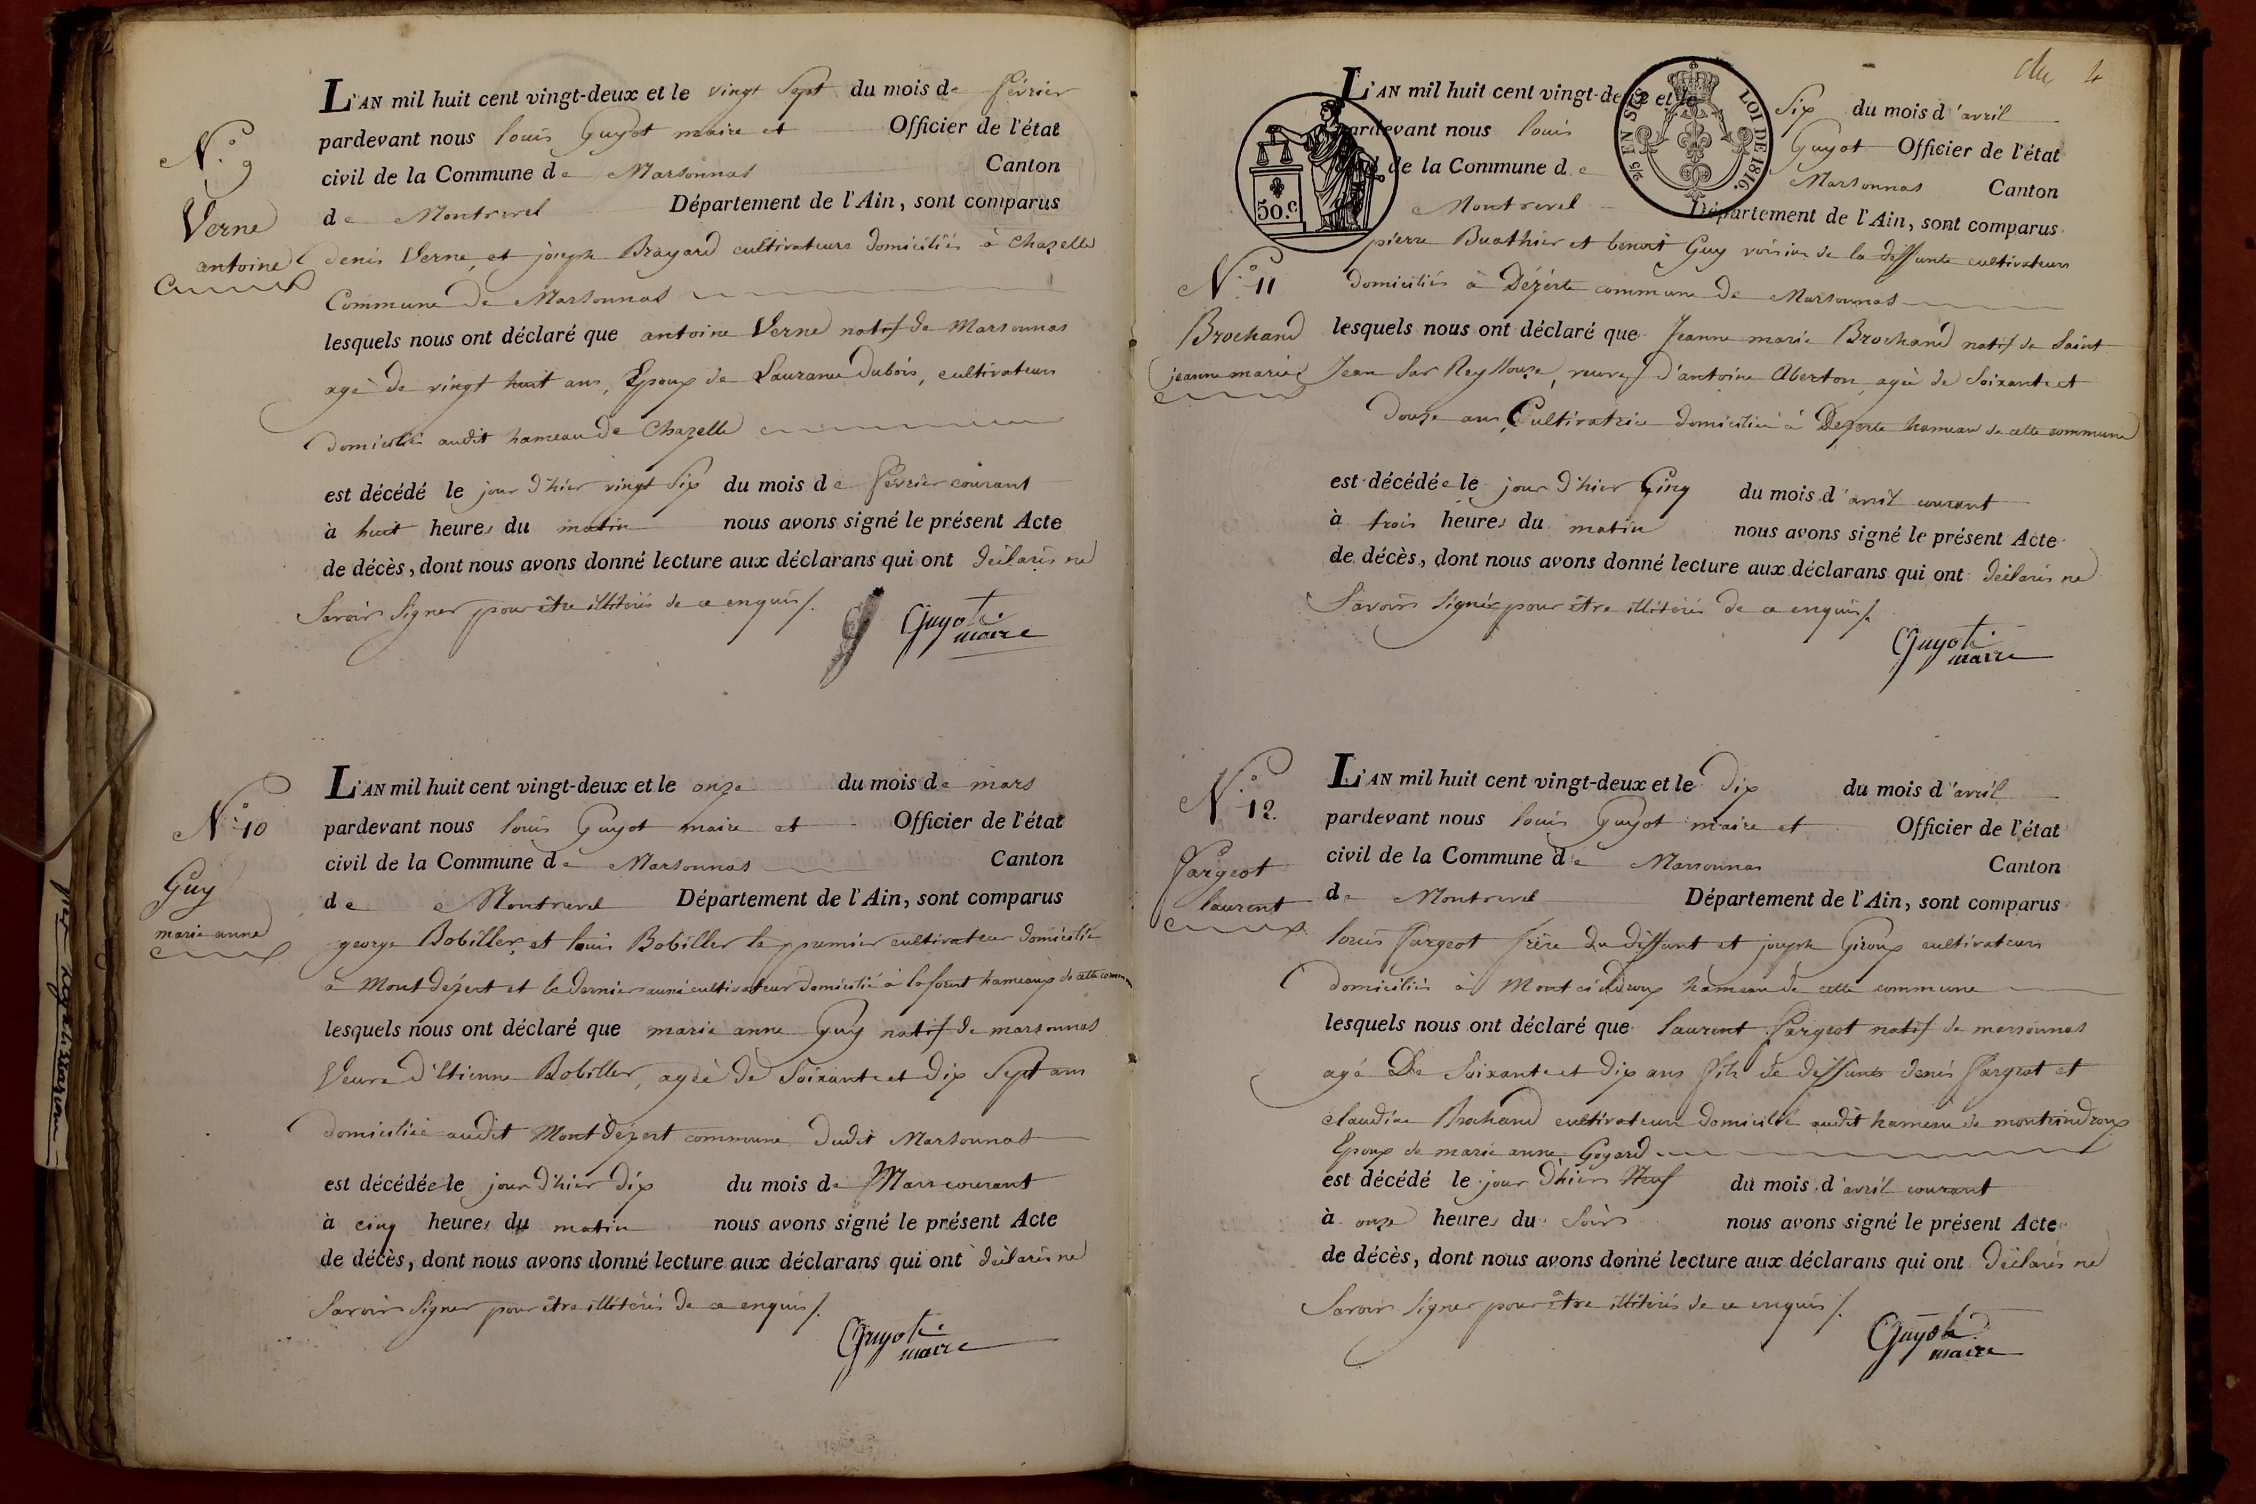 N.° 9
Verne
antoine
L'AN mil huit cent vingt-deux et le vingt Sept du mois de février
pardevant nous louis Guyot maire et Officier de l'état
civil de la Commune de Marsonnas Canton
de Montrevel Département de l'Ain, sont comparus
denis Verne et joseph Brayard cultivateurs domiciliés à Chazelle
Commune De Marsonnas
lesquels nous ont déclaré que antoine Verne natif de Marsonnas
agé de vingt huit ans, Epoux de Lauranne Dubois, cultivateurs
domicilié audit hameau De Chazelle
est décédé le jour d'hier vingt Six du mois de février courant
à huit heures du matin nous avons signé le présent Acte
de décès, dont nous avons donné lecture aux déclarans qui ont déclarés ne
Savoir Signer pour être illitérés de ce enquis /.
Guyot
maire
N.° 10
Guy
marie anne
L'AN mil huit cent vingt-deux et le onze du mois de mars
pardevant nous louis Guyot maire et Officier de l'état
civil de la Commune de Marsonnas Canton
de Montrevel Département de l'Ain, sont comparus
george Bobiller et louis Bobiller le premier cultivateur domicilié
à Mont dézert et le dernier aussi cultivateur domicilié à laforet hameaux de cette commune
lesquels nous ont déclaré que marie anne Guy natif de marsonnas
Veuve d'Etienne Bobiller, agéé de Soixante et dix Sept ans
domiciliée audit Mont dézert commune dudit Marsonnas
est décédée le jour d'hier dix du mois de Mars courant
à cinq heures du matin nous avons signé le présent Acte
de décès, dont nous avons donné lecture aux déclarans qui ont déclarés ne
Savoir Signer pour être illitérés de ce enquis /.
Guyot
maire
4
50.C
25/C EN SUS
LOI DE 1816.
N.° 11
Brochand
jeanne marie
L'AN mil huit cent vingt-deux et le Six du mois d'avril
pardevant nous louis Guyot Officier de l'état
civil de la Commune de Marsonnas Canton
Montrevel Département de l'Ain, sont comparus
pierre Buathier et benoit Guy voisins de la deffunte cultivateurs
domiciliés à Dézérte commune De Marsonnas
lesquels nous ont déclaré que Jeanne marie Brochand natif de Saint
Jean Sur Reyssouze, veuve d'antoine Aberton agée de Soixante et
Douze ans Cultivatrice domiciliée à Dezerte hameau de cette commune
est décédée le jour d'hier Cinq du mois d'avril courant
à trois heures du matin nous avons signé le présent Acte
de décès, dont nous avons donné lecture aux déclarans qui ont déclarés ne
Savoirs Signés pour être illitérés De ce enquis /.
Guyot
maire
N.° 12.
Pargeot
laurent
L'AN mil huit cent vingt-deux et le dix du mois d'avril
pardevant nous louis Guyot maire et Officier de l'état
civil de la Commune de Marsonnas Canton
de Montrevel Département de l'Ain, sont comparus
louis Pargeot frère du deffunt et joseph Giroux cultivateurs
domiciliés à Mont cindroux hameau de cette commune
lesquels nous ont déclaré que laurent Pargeot natif de marsonnas
agé De Soixante et dix ans fils de deffunts denis Pargeot et
claudine Brochand cultivateurs domicilié audit hameau de montcindroux
Epoux de marie anne Goyard
est décédé le jour d'hier Neuf du mois d'avril courant
à onze heures du Soir nous avons signé le présent Acte
de décès, dont nous avons donné lecture aux déclarans qui ont Déclarés ne
Savoir Signer pour être illitérés de ce enquis /.
Guyot
maire